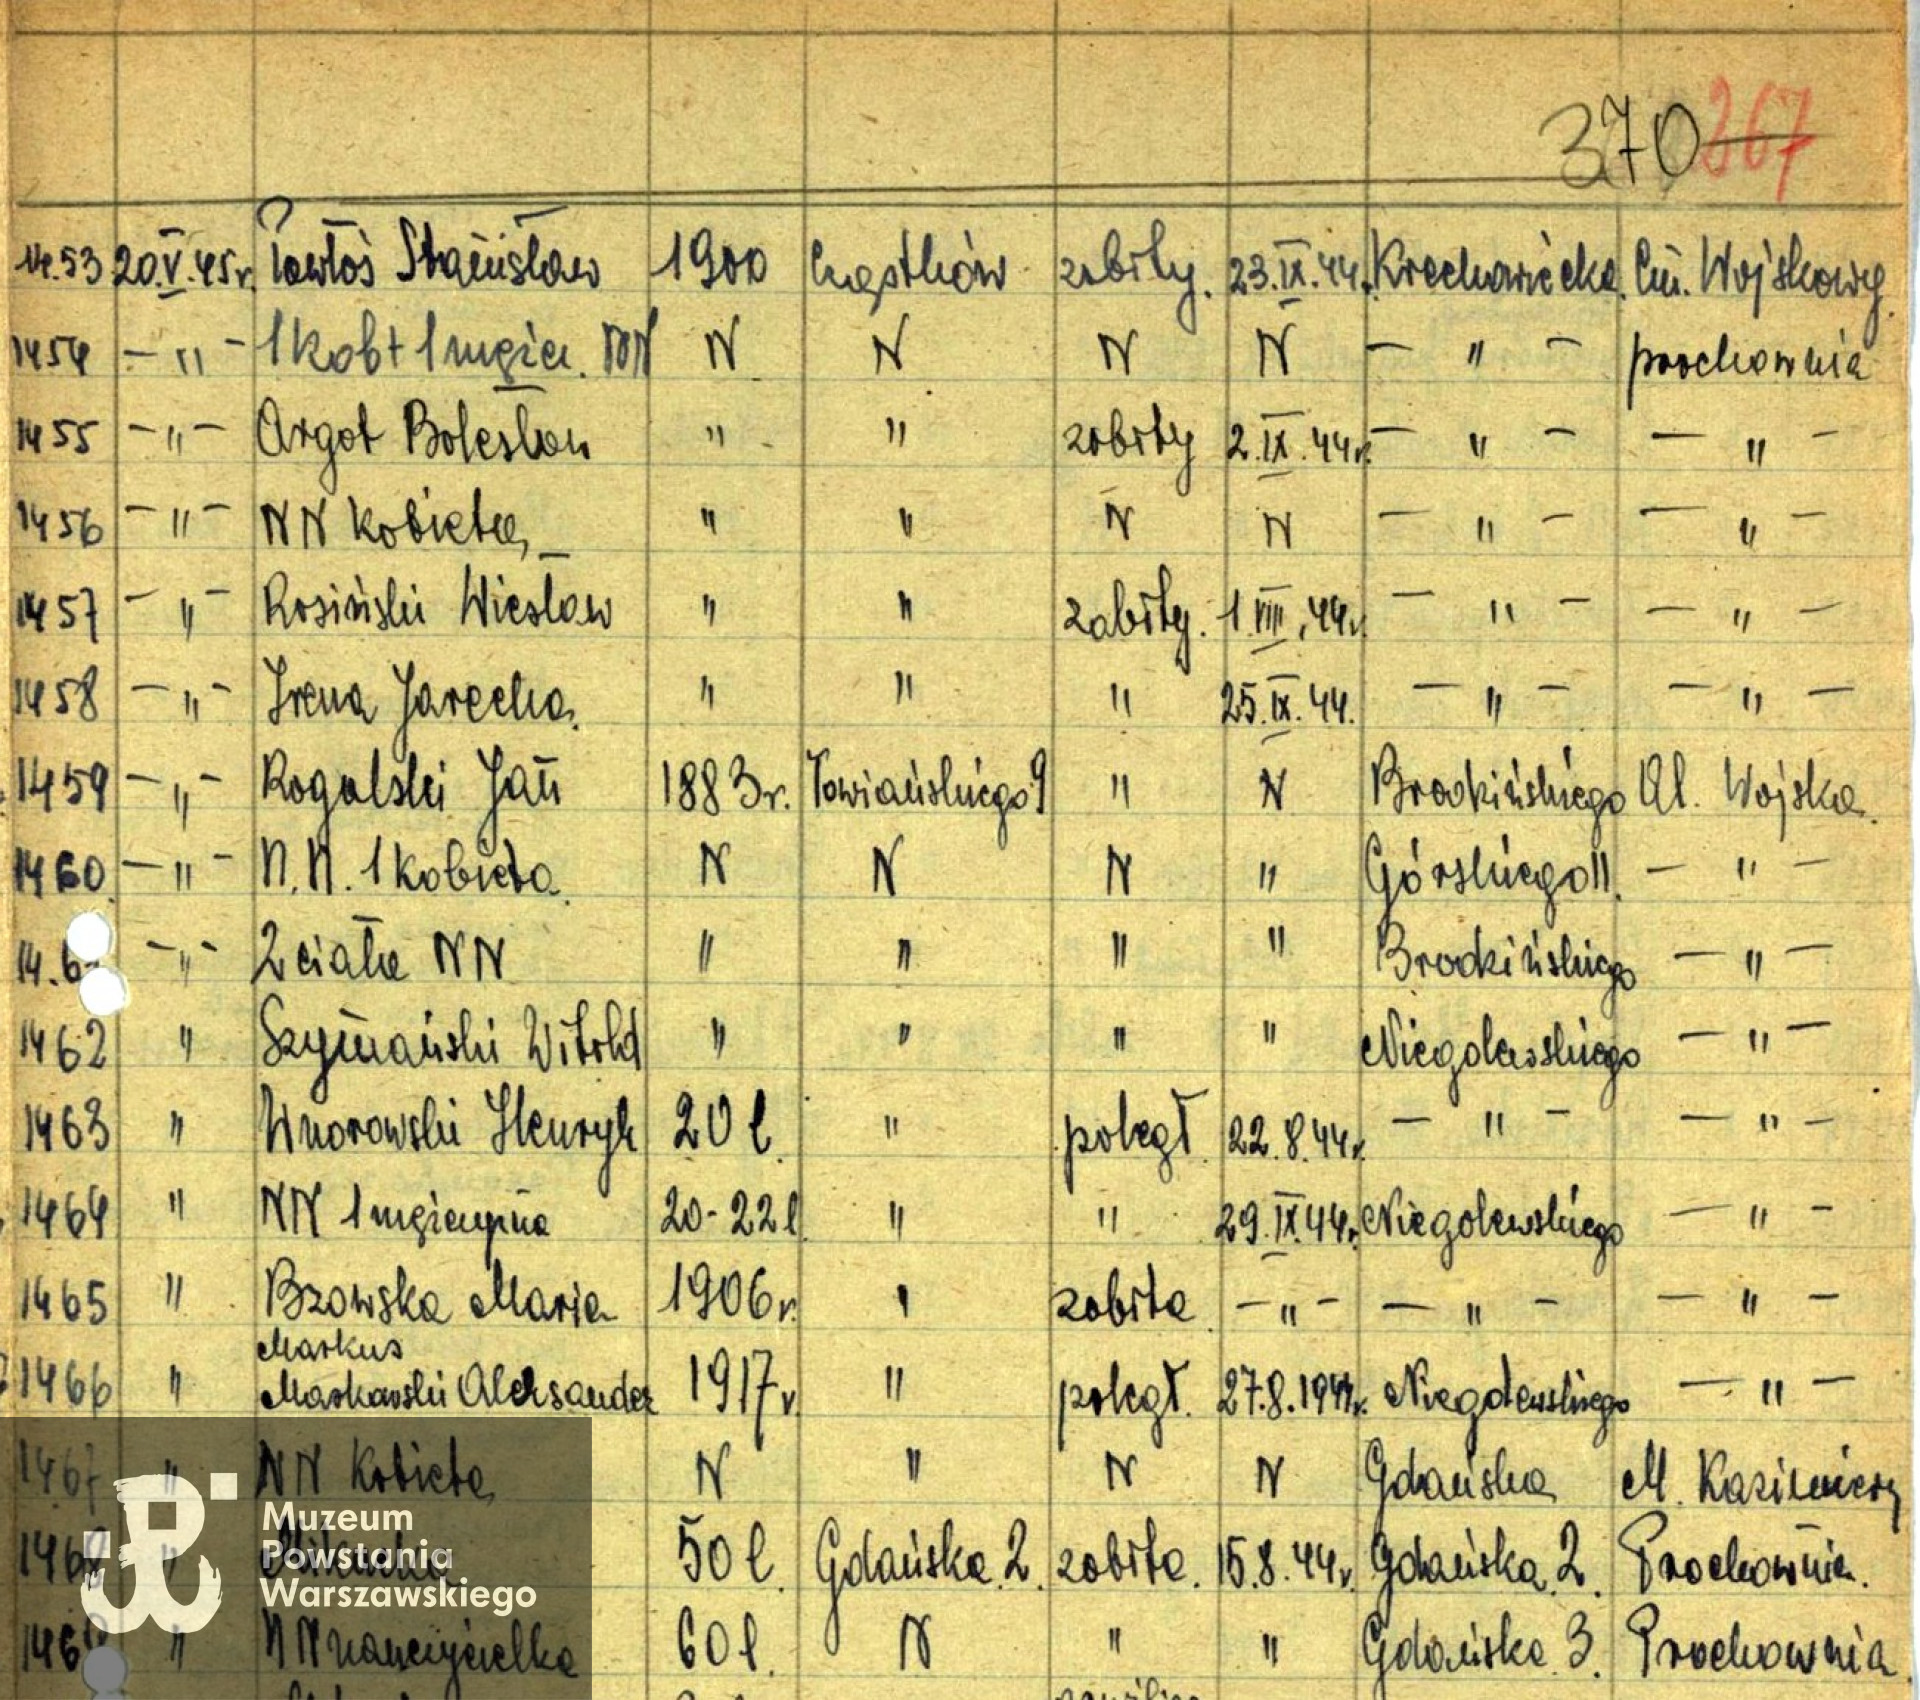 370 367
14.53 20.V.45r. Pawłoś Stanisław 1900 zabity. 23.IX.44r. Krechowiecka. Cm. Wojskowy.
1454 — " — 1 kob + 1 mężcz. NN N N N N — " — prochownia
1455 — " — Argot Bolesław " " zabity 2.IX.44r. — " — — " —
1456 — " — NN kobieta " " N N — " — — " —
1457 — " — Rosiński Wiesław " " zabity. 1.VIII.44r. — " — — " —
1458 — " — Irena Jarecka. " " " 25.IX.44. — " — — " —
1459 — " — Rogalski Jan 1883r. Towiańskiego 9 " N Brodzińskiego Al. Wojska.
1460. — " — N.N. 1 kobieta. N N N " Górskiego 11. — " —
14.6 — " — 2 ciała NN " " " " Brodzińskiego — " —
1462 " Szymański Witold " " " " Niegolewskiego — " —
1463 " Wnorowski Henryk 20 l. " poległ. 22.8.44r. — " — — " —
1464 " NN 1 mężczyzna 20-22 l " " 29.IX.44r. Niegolewskiego — " —
1465 " Bzowska Maria 1906r. " zabita. — " — — " — — " —
Markus
1466 " Markowski Aleksander 1917r. " poległ. 27.8.1944r. Niegolewskiego — " —
1467 " NN Kobieta N " N N Gdańska M. Kazimierz
1468 " 50 l. Gdańska 2. zabita. 15.8.44r. Gdańska 2. Prochownia.
146 " NN nauczycielka 60 l. N " " Gdańska 3. Prochownia
Muzeum
Powstania
Warszawskiego